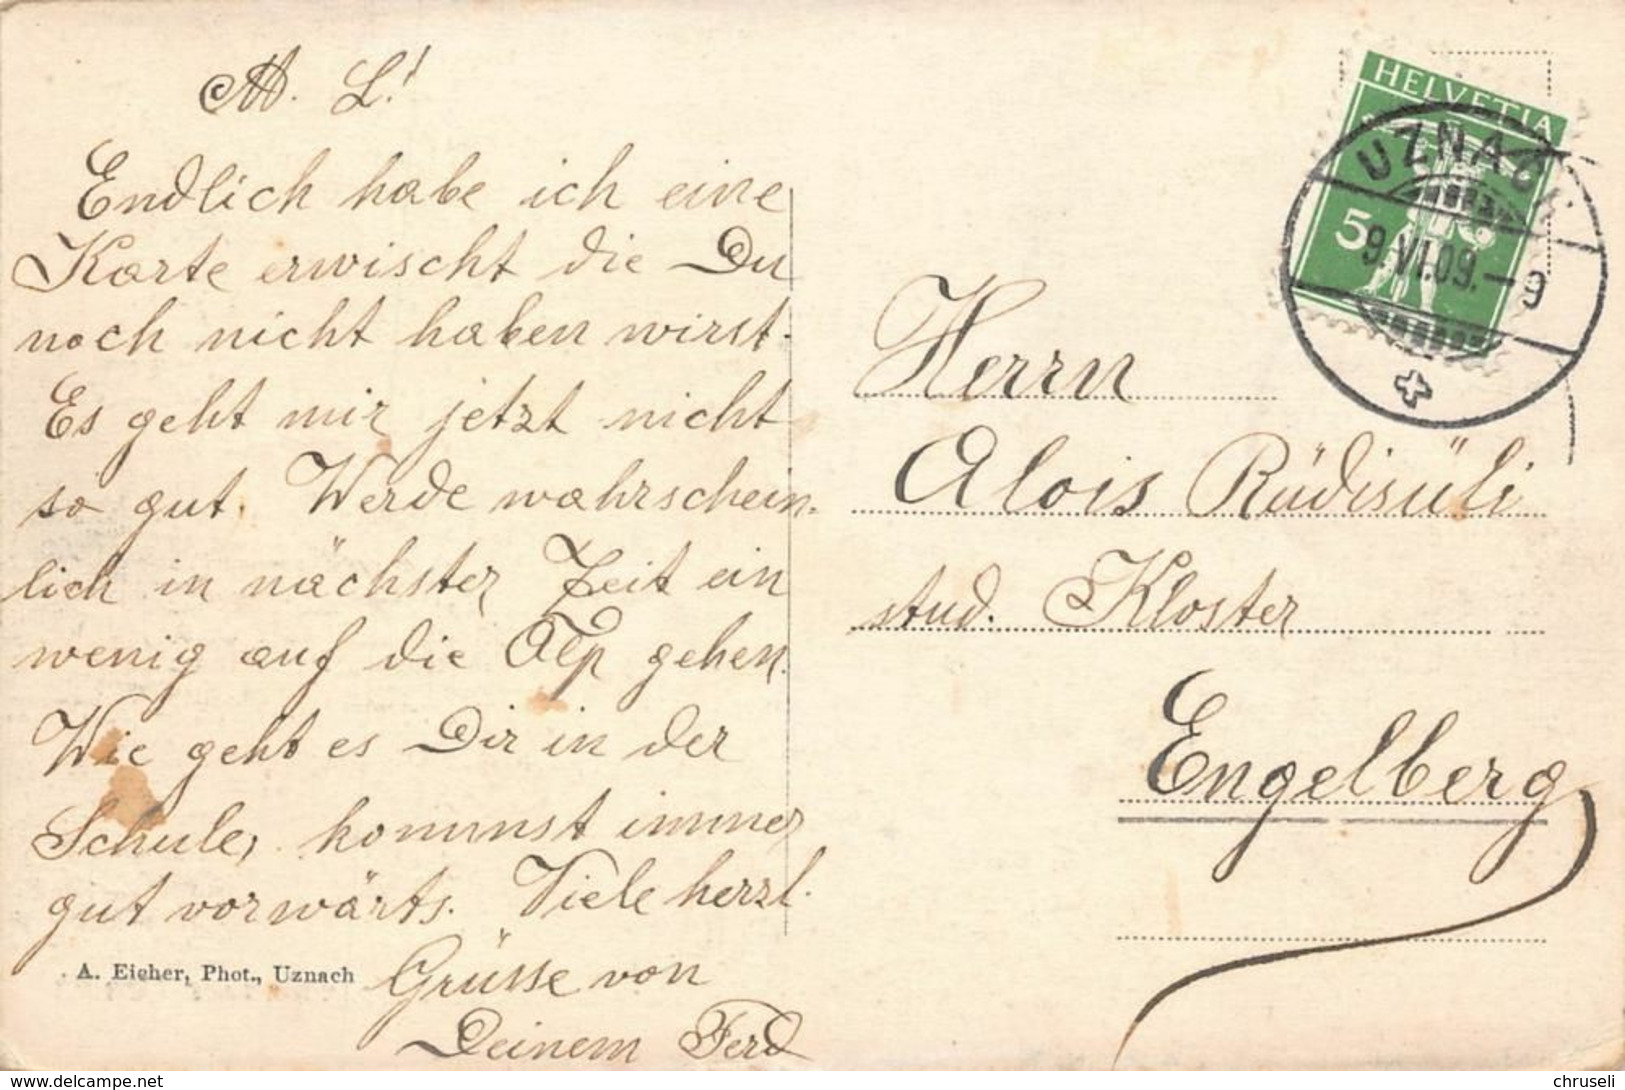 M. L.!
Endlich habe ich eine
Karte erwischt die Du
noch nicht haben wirst.
Es geht mir jetzt nicht
so gut. Werde wahrschein-
lich in nächster Zeit ein
wenig auf die Alp gehen.
Wie geht es Dir in der
Schule, kommst immer
gut vorwärts. Viele herzl.
Grüsse von
Deinem Ferd
A. Eicher, Phot., Uznach
HELVETIA
5
UZNACH
9.VI.09.-9
Herrn
Alois Rüdisüli
stud. Kloster
Engelberg
https://www.delcampe.net
chruseli